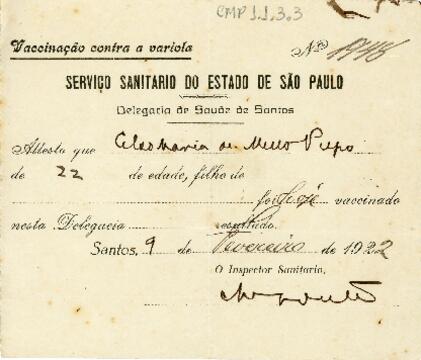 CMP 1.1.3.3
Vaccinação contra a variola
Nº 1948
SERVIÇO SANITARIO DO ESTADO DE SÃO PAULO
Delegacia de Saude de Santos
Attesto que de Mello Pupo
de 22 de edade, filho de
foi hoje vaccinado
nesta Delegacia resultado
Santos, 9 de Fevereiro de 1922
O Inspector Sanitario,